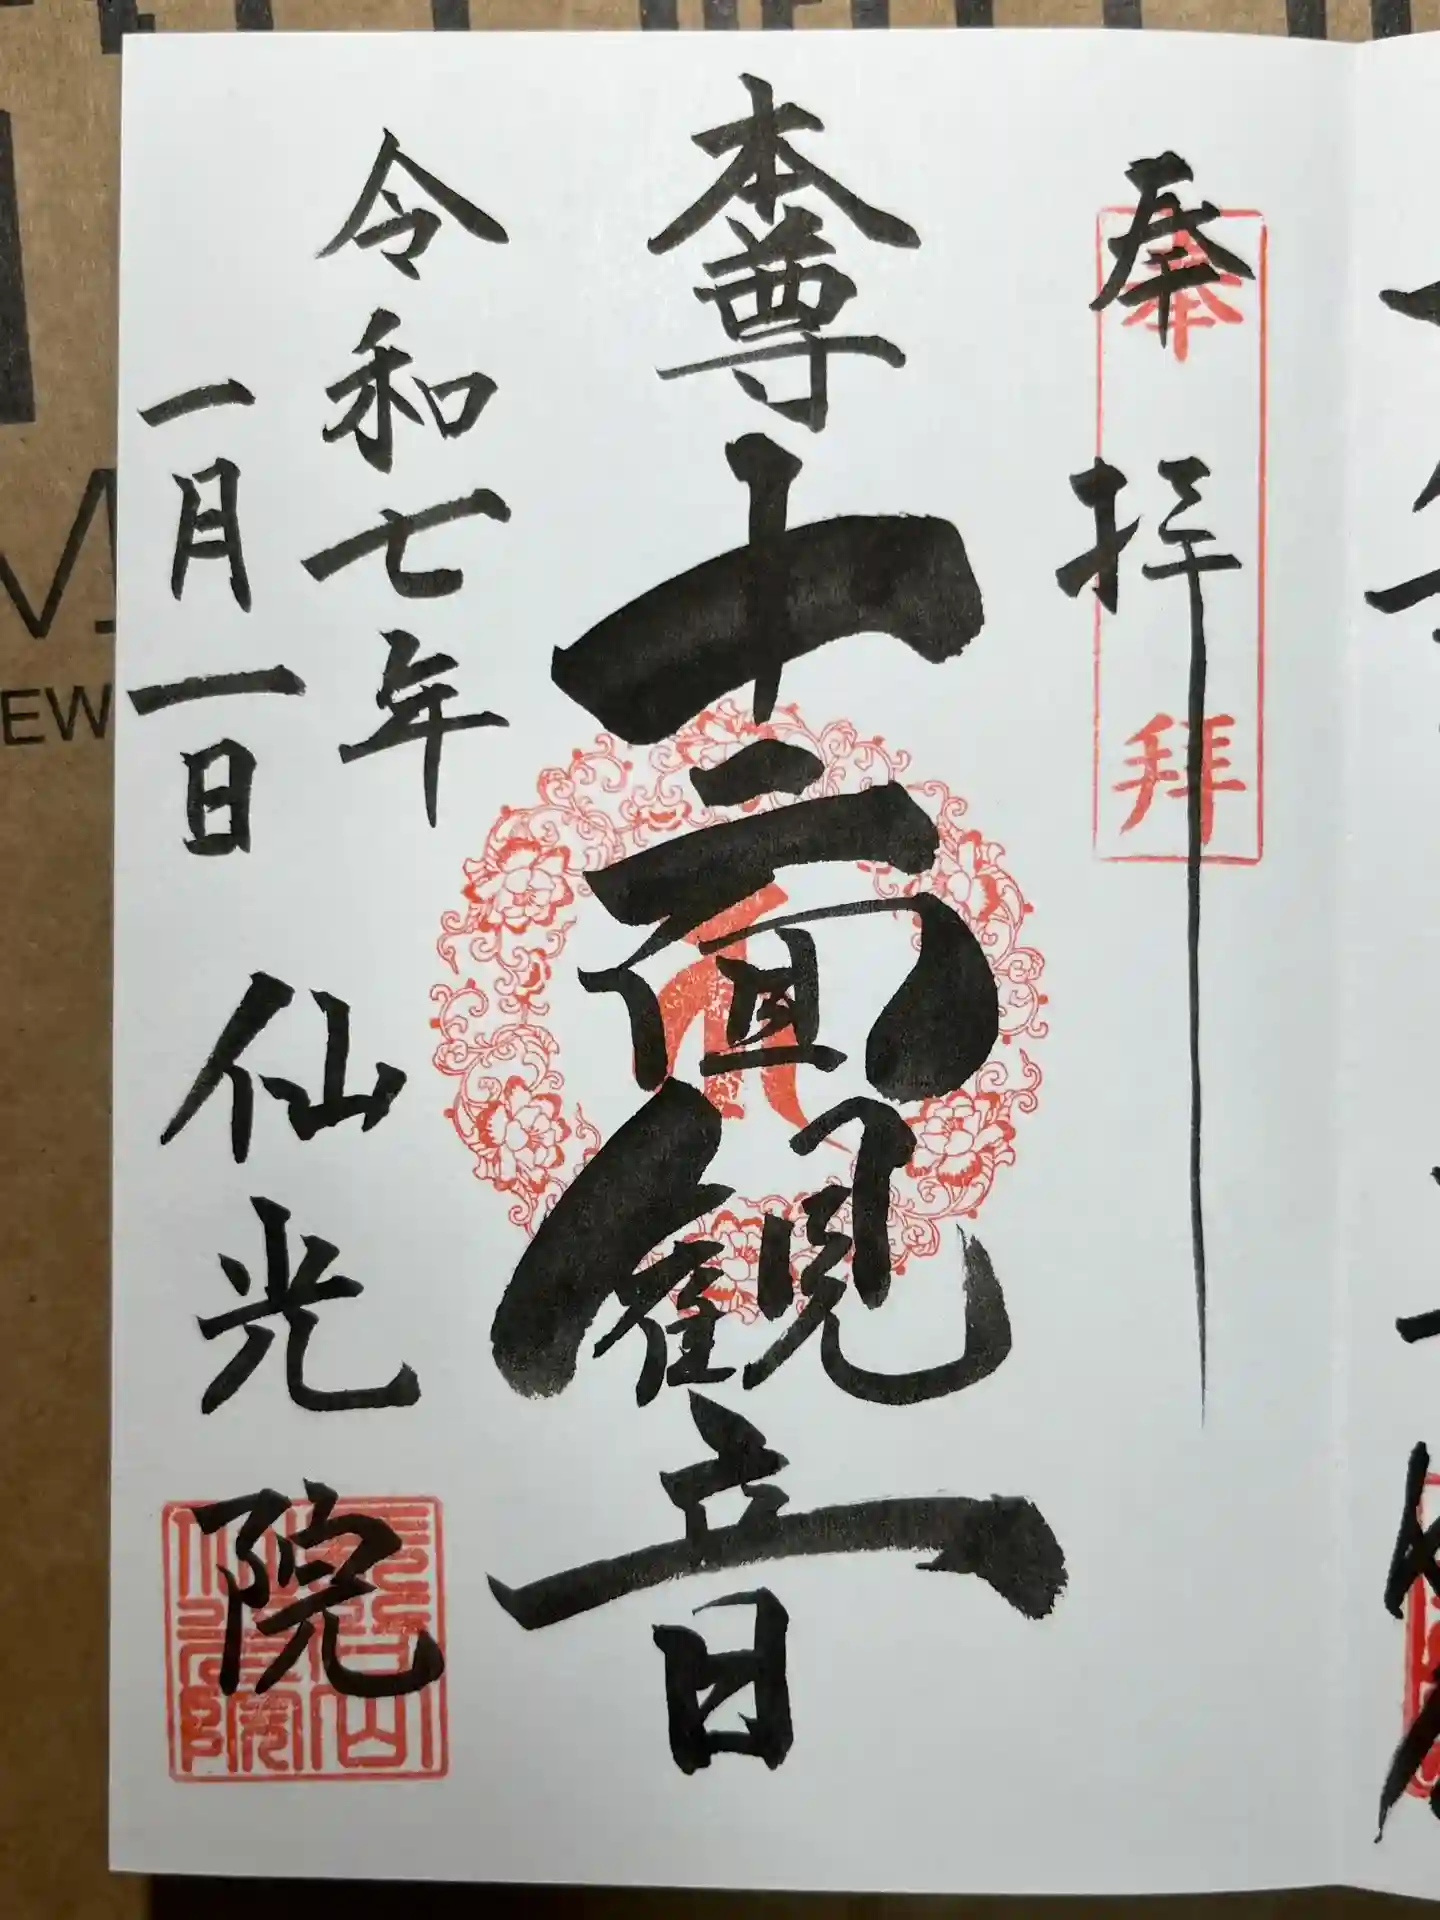 奉拝
奉拝
本尊十一面観音
令和七年
一月一日
仙光院
EW